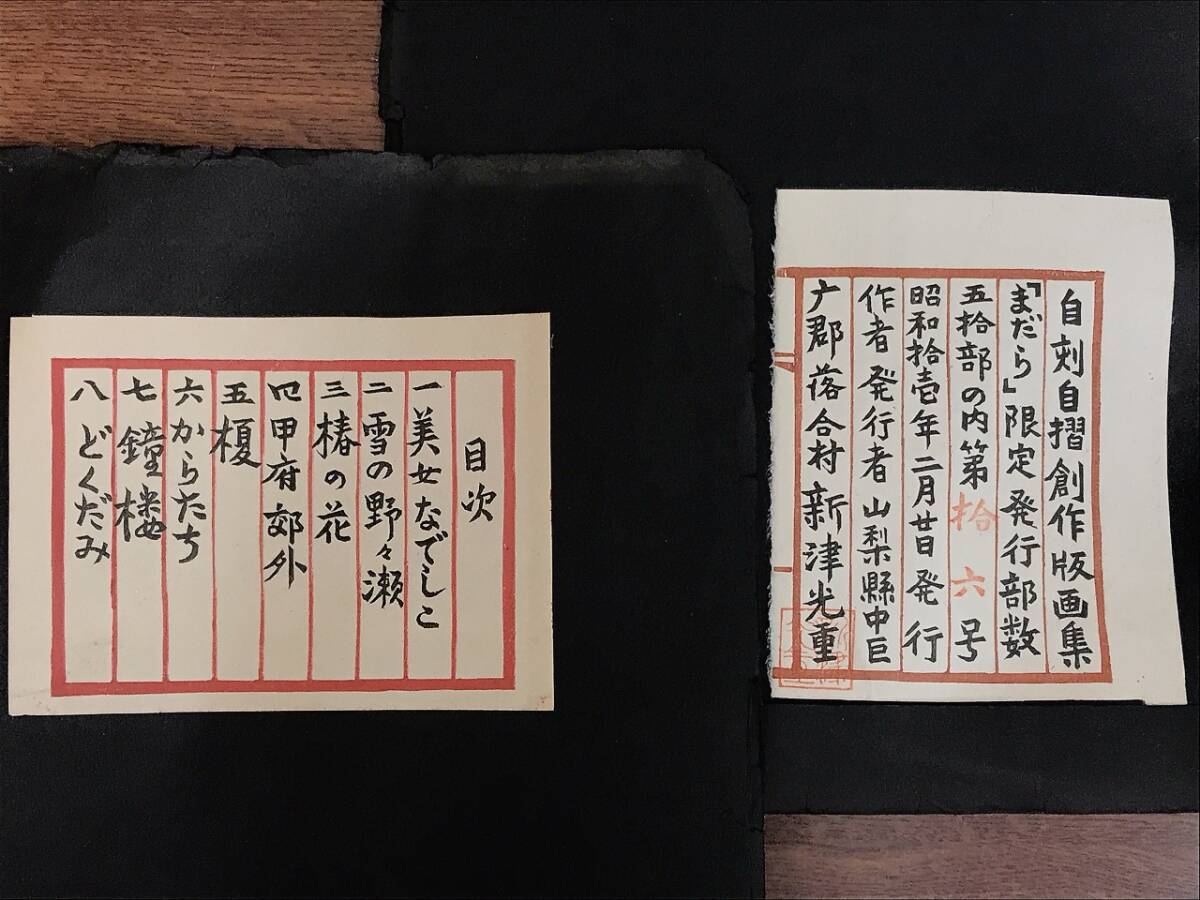 自刻自摺創作版画集
『まだら』限定発行部数
五拾部の内第拾六号
昭和拾壱年二月廿日発行
作者発行者山梨縣中巨
广郡落合村新津光重
目次
一美女なでしこ
二雪の野々瀬
三椿の花
四甲府郊外
五榎
六からたち
七鐘楼
八どくだみ